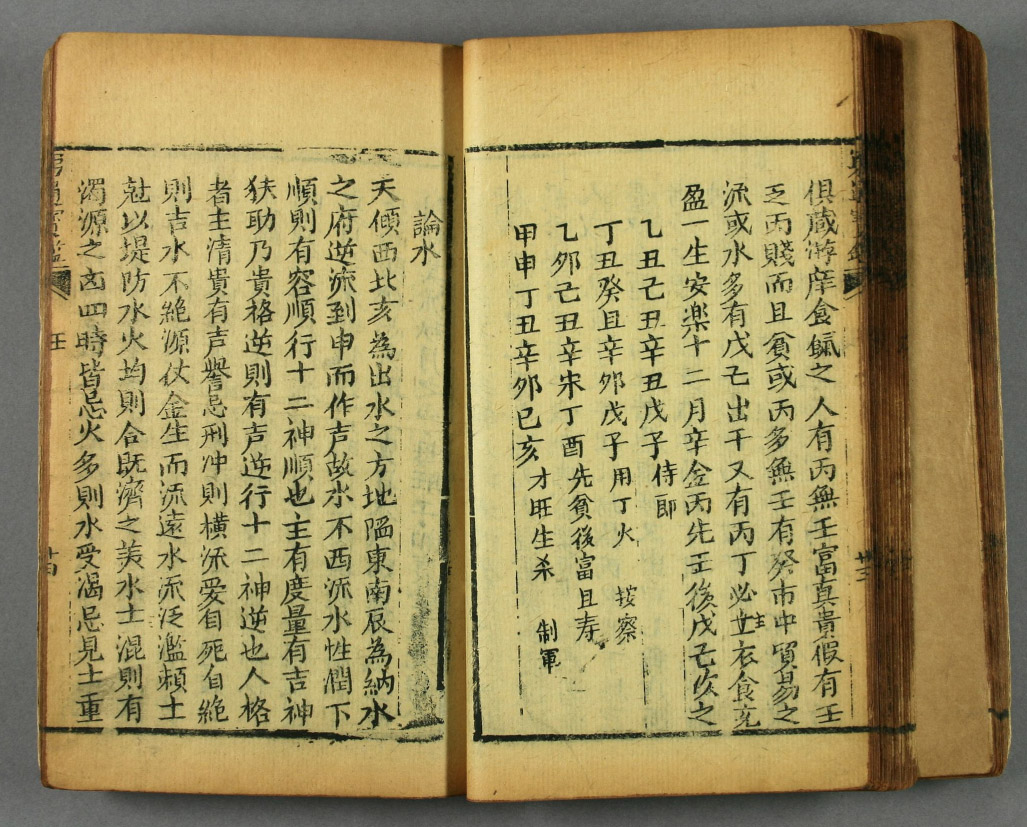 俱蔵游庠食餼之人有丙無壬富真貴假有壬
乏丙賤而且貧或丙多無壬有癸市中貿易之
流或水多有戊己出干又有丙丁必主衣食充
盈一生安楽十二月辛金丙先壬後戊己次之
乙丑己丑辛丑戊子 侍郎
丁丑癸丑辛卯戊子 用丁火 按察
乙卯己丑辛未丁酉 先貧後富且寿
甲申丁丑辛卯己亥 才旺生杀 制軍
論水
天傾西北亥為出水之方地陷東南辰為納水
之府逆流到申而作声故水不西流水性潤下
順則有容順行十二神順也主有度量有吉神
扶助乃貴格逆則有声逆行十二神逆也人格
者主清貴有声譽忌刑冲則横流爱自死自絶
則吉水不絶源仗金生而流遠水流泛濫頼土
尅以堤防水火均則合既濟之美水土混則有
濁源之凶四時皆忌火多則水受渴忌見土重
廿三
廿四